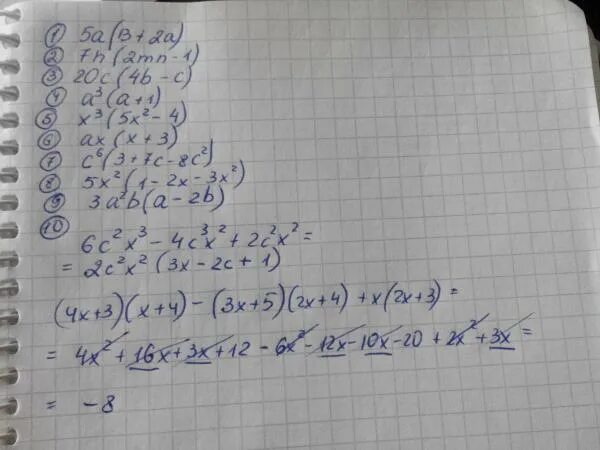 ① 5a(B + 2a)
② 7n(2mn - 1)
③ 20c(4b - c)
④ a³(a + 1)
⑤ x³(5x² - 4)
⑥ ax(x + 3)
⑦ c⁶(3 + 7c - 8c²)
⑧ 5x²(1 - 2x - 3x²)
⑨ 3a²b(a - 2b)
⑩
6c²x³ - 4c³x² + 2c²x² =
= 2c²x²(3x - 2c + 1)
(4x+3)(x+4) - (3x+5)(2x+4) + x(2x+3) =
= 4x² + 16x + 3x + 12 - 6x² - 12x - 10x - 20 + 2x² + 3x =
= -8